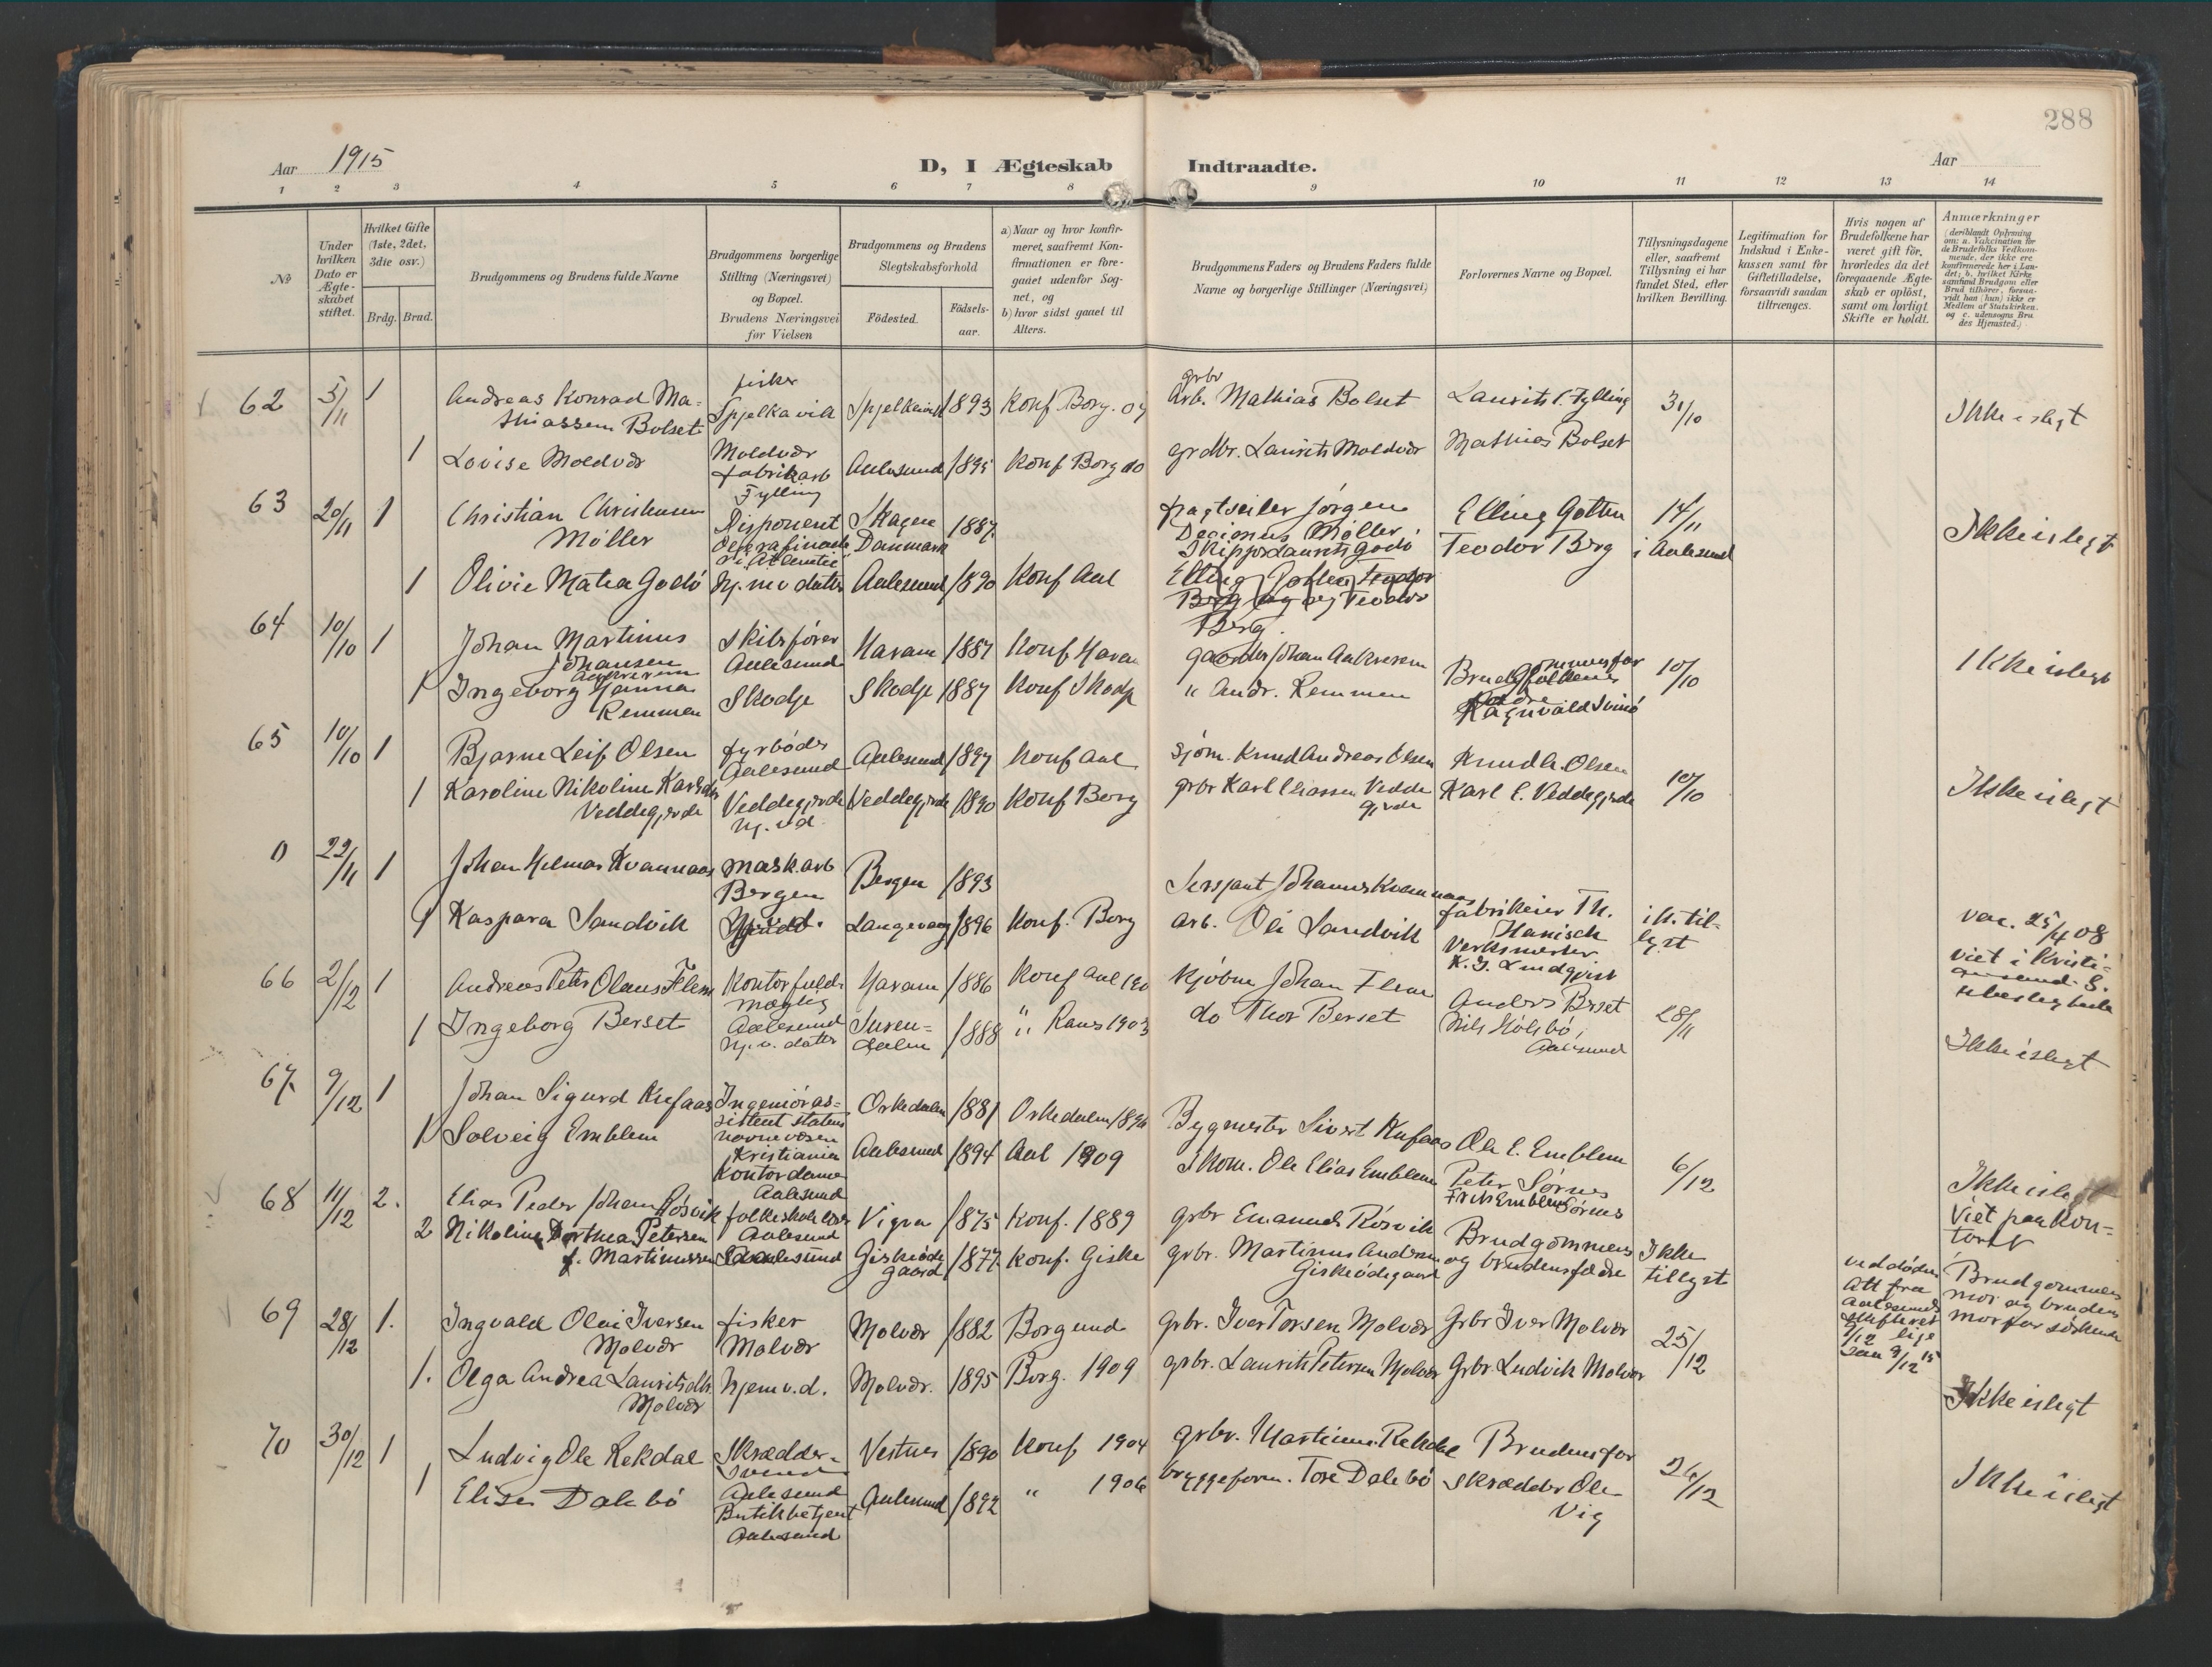 288
Aar 1915
D, I Ægteskab Indtraadte.
Aar
1 2 3 4 5 6 7 8 9 10 11 12 13 14
№
Under hvilken Dato er Ægteskabet stiftet.
Hvilket Gifte (1ste, 2det, 3die osv.)
Brdg. Brud.
Brudgommens og Brudens fulde Navne
Brudgommens borgerlige Stilling (Næringsvei) og Bopæl. Brudens Næringsvei før Vielsen
Brudgommens og Brudens Slegtskabsforhold
Födested. Födselsaar.
a) Naar og hvor konfirmeret, saafremt Konfirmationen er foregaaet udenfor Sognet, og
b) hvor sidst gaaet til Alters.
Brudgommens Faders og Brudens Faders fulde Navne og borgerlige Stillinger (Næringsvei)
Forlovernes Navne og Bopæl.
Tillysningsdagene eller, saafremt Tillysning ei har fundet Sted, efter hvilken Bevilling.
Legitimation for Indskud i Enkekassen samt for Giftetilladelse, forsaavidt saadan tiltrænges.
Hvis nogen af Brudefolkene har været gift før, hvorledes da det foregaaende Ægteskab er oplöst, samt om lovligt Skifte er holdt.
Anmærkninger (deriblandt Oplysning om: a. Vakcination for de Brudefolks Vedkommende, der ikke ere konfirmerede her i Landet; b. hvilket Kirkesamfund Brudgom eller Brud tilhörer, forsaavidt han (hun) ikke er Medlem af Statskirken. og c. udensogns Brudes Hjemsted.)
62 5/11 1 Andreas Konrad Ma-
thiassen Bolset
fisker
Spjelkavik
Spjelkavik 1893 Konf. Borg. 07
grbr
Arb. Mathias Bolset
Laurits C. Fylling
31/10
Ikke i slegt
1 Lovise Moldvær
Moldvær
fabrikarb
Fylling
Aalesund 1895 Konf Borg do
grdbr. Laurits Moldvær
Mathias Bolset
63 20/11 1 Christian Christensen
Möller
Disponent
Skagen
Danmark
1887
fragtseiler Jörgen
Möller
Elling Gotten
14/11
i Aalesund
Ikke i slegt
Skipper Laurits Godö
Teodor Berg
1 Olivie Matea Godö
hj. mo datter
Aalesund 1890 Konf Aal
Berg og Teodor
Berg.
64 10/10 1 Johan Martinus
Johansen
Skibsförer
Aalesund
Haram 1887 Konf Haram
10/10
Ikke i slegt
1 Ingeborg Hanna
Remmen
Skodje
Skodje 1887 Konf Skodje
" Andr. Remmen
Ragnvald
65 10/10 1 Bjarne Leif Olsen
fyrböder
Aalesund
Aalesund 1897 Konf Aal
sjöm. Knud Andreas Olsen
Knud A. Olsen
10/10
Ikke i slegt
1 Karoline Nikoline Karlsdtr
Veddegjerde
Veddegjerde
hj. v d.
Veddegjerde 1890 Konf Borg
grbr Karl Eliassen Vedde
gjerde
Karl E. Veddegjerde
0 22/11 1 Johan Hilmar Kvamnaas
mask.arb
Bergen
Bergen 1893
Sersjant Johannes Kvamnaas
fabrikeier Th.
Hanisch
ik. til-
lyst
1 Kaspara Sandvik
Langevaag 1896 Konf. Borg
arb. Ole Sandvik
Verksmester
K. J. Lindqvist
vac. 25/4 08
viet i Kristi-
ansund S.
ubeslegtede
66 2/12 1 Andreas Peter Olaus Flem
Kontorfuld-
mægtig
Aalesund
Haram 1886 Konf Aal
Kjöbm Johan Flem
Anders Berset
28/11
1 Ingeborg Berset
hj. v. datter
Suren-
dalen
1888 " Raus 1903
do Thor Berset
Nils Holsbö,
Aalesund
Ikke i slegt
67. 9/12 1 Johan Sigurd Kufaas
Ingeniöras-
sistent statens
havnevæsen
Kristiania
Orkedalen 1881 Orkedalen 1896
Bygmester Sivert Kufaas
Ole E. Emblem
6/12
Ikke i slegt
1 Solveig Emblem
Kontordame
Aalesund
Aalesund 1894 Aal 1909
Skom. Ole Elias Emblem
Peter Sörnes
68 11/12 2. Elias Peder Johan Rösvik
folkeskolelærer
Aalesund
Vigra 1875 Konf. 1889
grbr Emanuel Rösvik
Brudgommens
og brudens fædre
Ikke
tillyst
Viet paa kon-
toret
2 Nikoline Dorthea Petersen
f. Martinussen
Aalesund
Giskeöde
gaard
1877 Konf. Giske
grbr. Martinus Andersen
Giskeödegaard
ved döden
Att fra
Aalesunds
skifteret
9/12 15
Brudgommens
mor og brudens
morfar söskende
69 28/12 1. Ingvald Olai Iversen
Molvær
fisker
Molvær
Molvær 1882 Borgund
grbr. Iver Torsen Molvær
Grbr Iver Molvær
25/12
1. Olga Andrea Lauritsdtr.
Molvær
hjem v. d. Molvær. 1895 Borg. 1909
grbr. Laurits Petersen Molvær
Grbr. Ludvik Molvær
Ikke i slegt
70 30/12 1 Ludvig Ole Rekdal
Skrædder-
svend
Aalesund
Vestnes 1890 Konf 1904
grbr. Martinus Rekdal
Brudens far
26/12
Ikke i slegt
1 Elise Dalebö
Butikbetjent
Aalesund
Aalesund 1892 " 1906
bryggeform. Tore Dalebö
Skrædder Ole
Vig